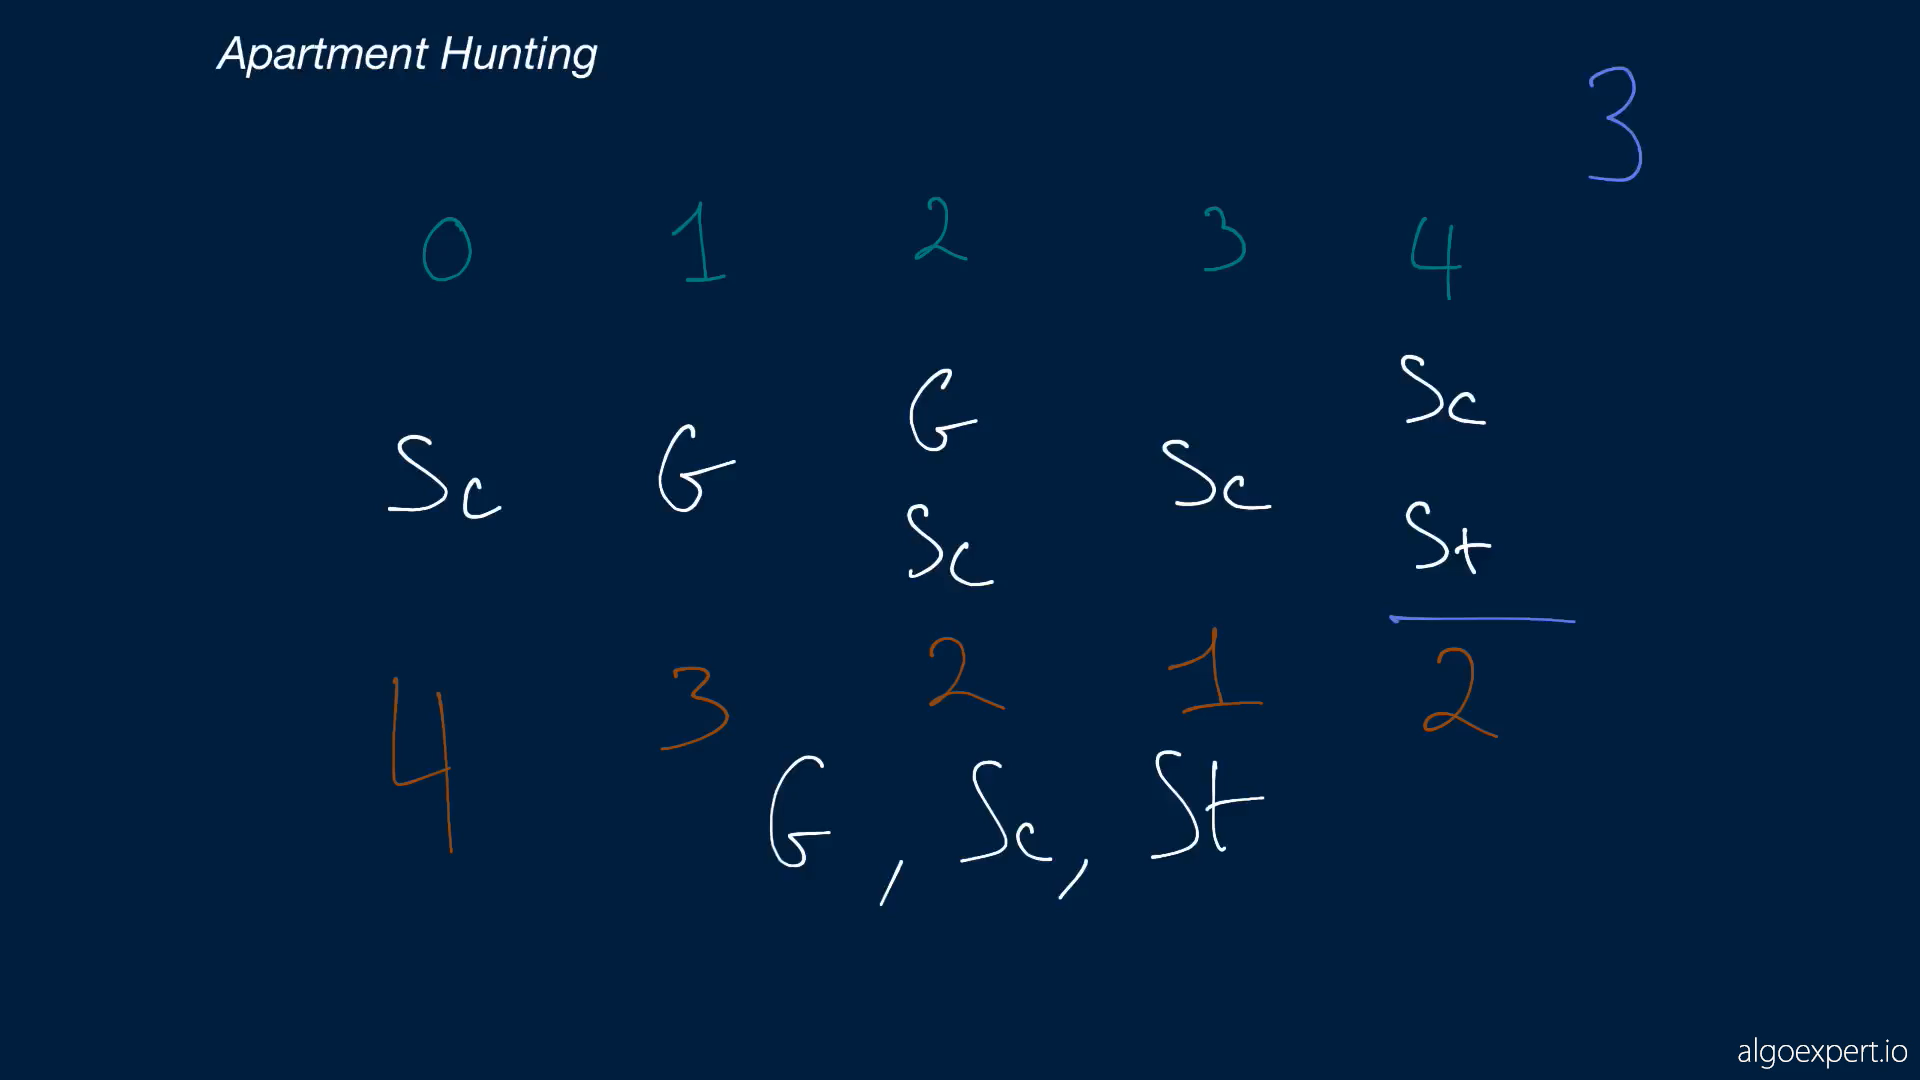 Apartment Hunting
3
0 1 2 3 4
G Sc
Sc G Sc
Sc St
4 3 2 1 2
G, Sc, St
algoexpert.io